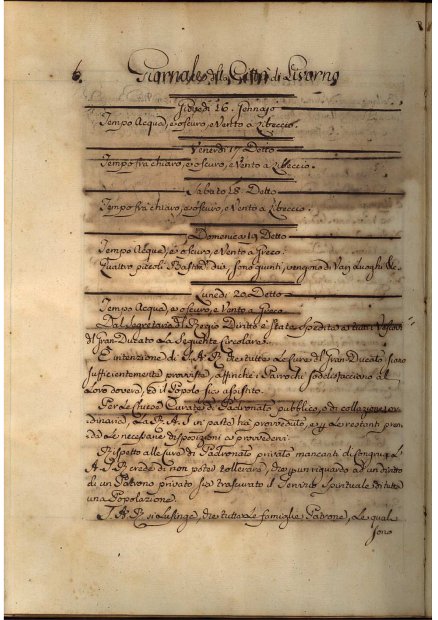 6. Giornale della Città di Livorno
Giovedì 16. Gennajo
Tempo Acqua, e oscuro, e Vento a Libeccio.
Venerdì 17 Detto
Tempo fra chiaro, e oscuro, e Vento a Libeccio.
Sabato 18 Detto
Tempo fra chiaro, e oscuro, e Vento a Libeccio.
Domenica 19 Detto
Tempo Acqua, e oscuro, e Vento a Greco.
Quattro piccoli Bastim.ti sono giunti, vengono da Varj Luoghi &c.
Lunedì 20 Detto
Tempo Acqua, e oscuro, e Vento a Greco
Dal Segretario del Regio Diritto è stata spedita a tutti i Vescovi
del Gran Ducato la Seguente Circolare.
È intenzione di S. A. R. che tutte le Cure del Gran Ducato siano
sufficientemente provviste, affinchè i Parrochi sodisfacciano al
loro dovere, ed il Popolo sia assistito.
Per le Chiese Curate di Padronato pubblico, e di collazione or-
dinaria, la R. A. S. in parte ha provveduto, e per le restanti pren-
derà le necessarie disposizioni a provvedervi.
Rispetto alle Cure di Padronato privato mancanti di congrua L'
A. S. R. crede di non poter tollerare, che per riguardo ad un diritto
di un Patrono privato sia trascurato il Servizio Spirituale di tutta
una Popolazione.
S. A. R. si lusinga, che tutte le famiglie Patrone, le quali
sono